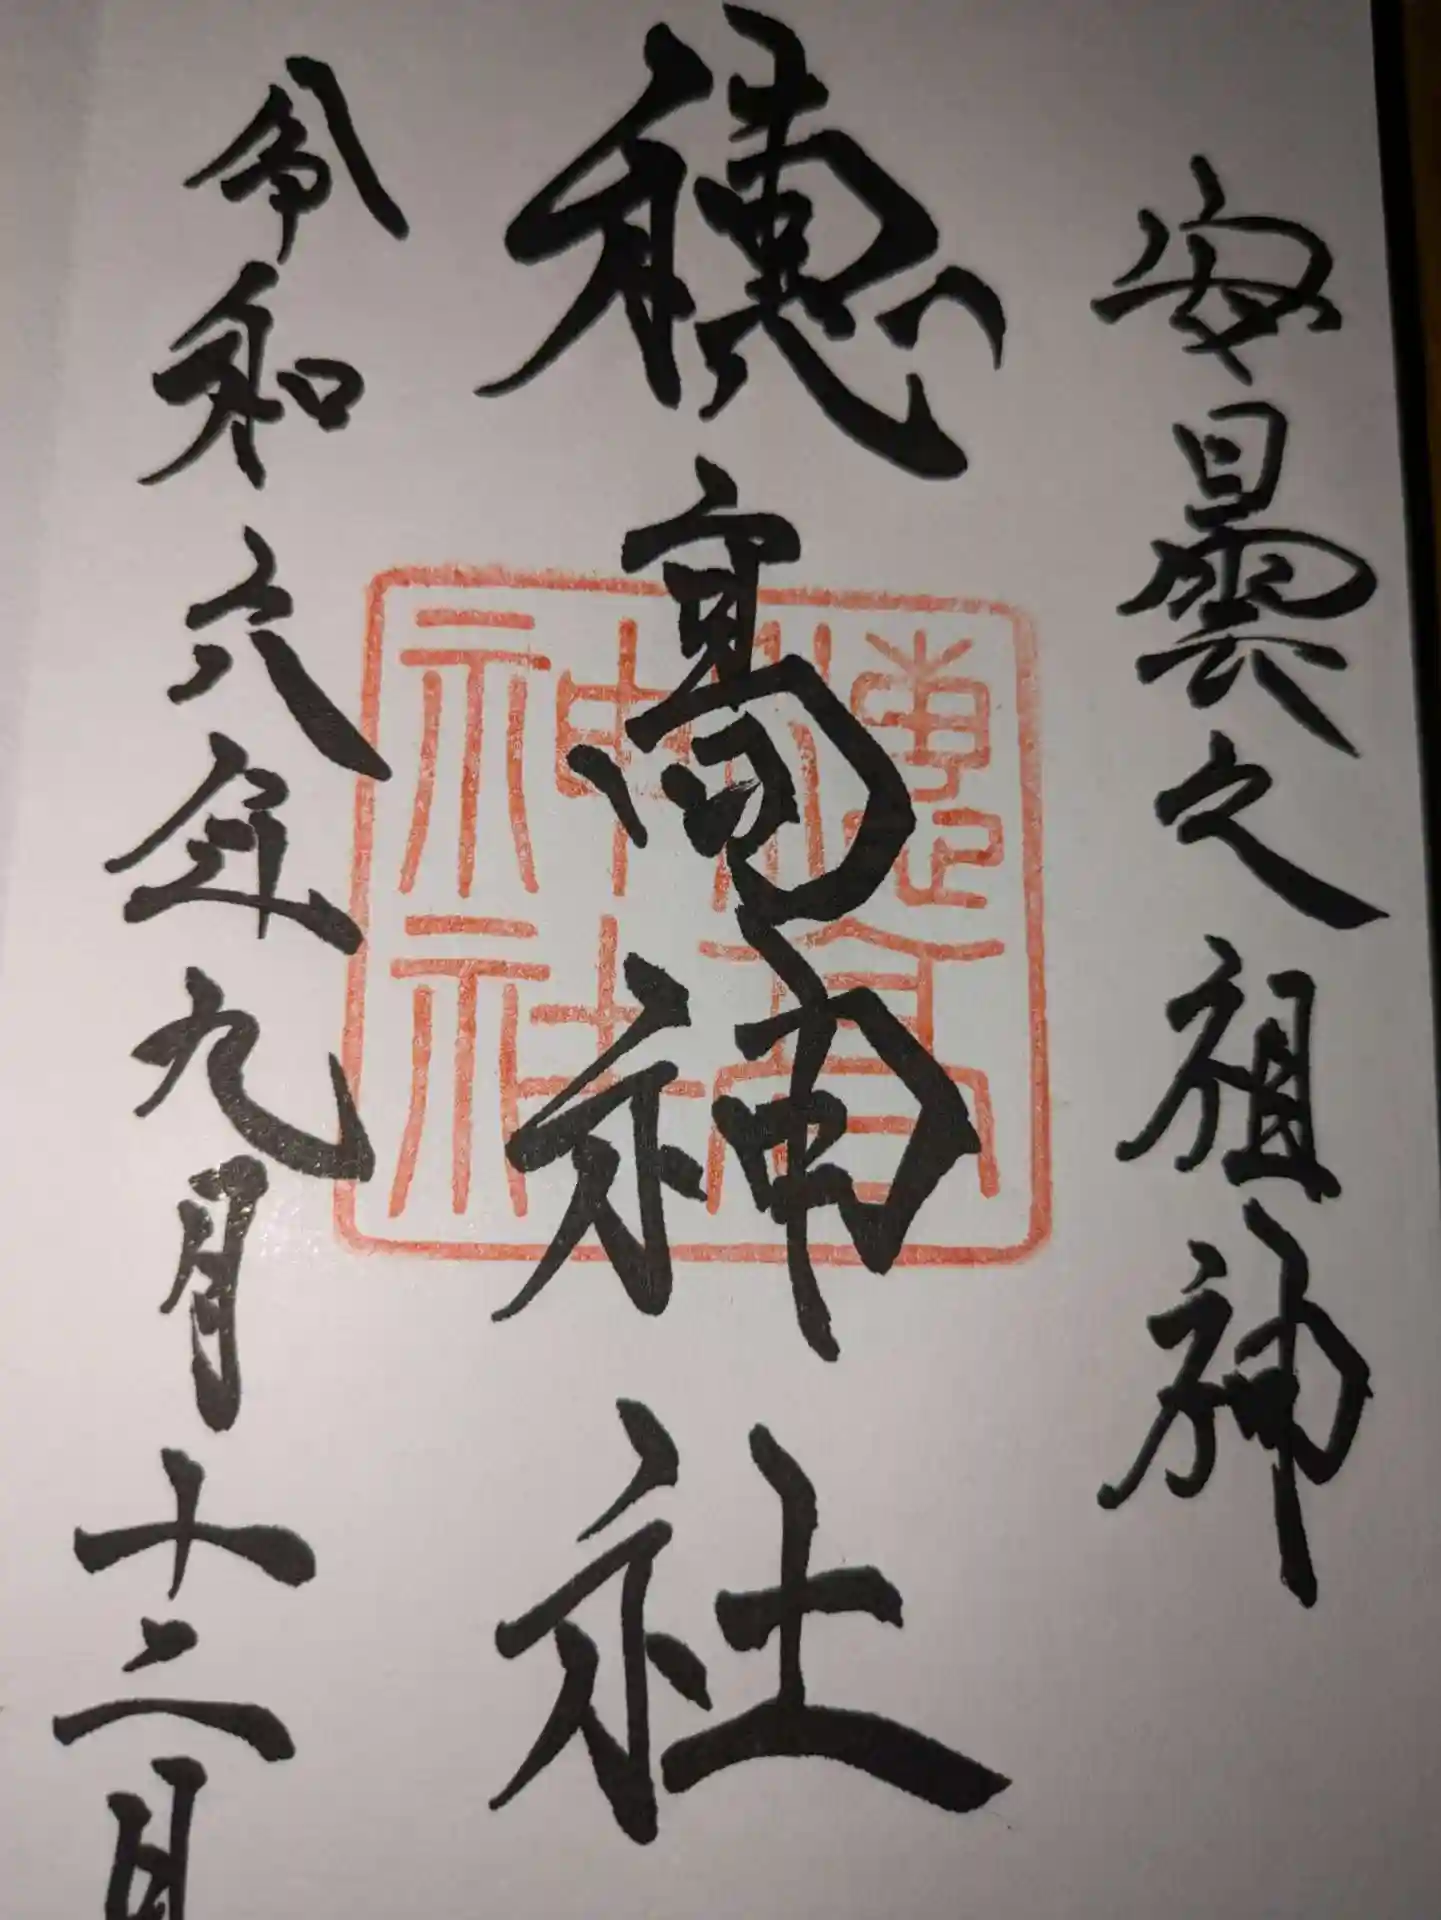 安曇之祖神
穂高神社
穂高
神社
令和六年九月十二日